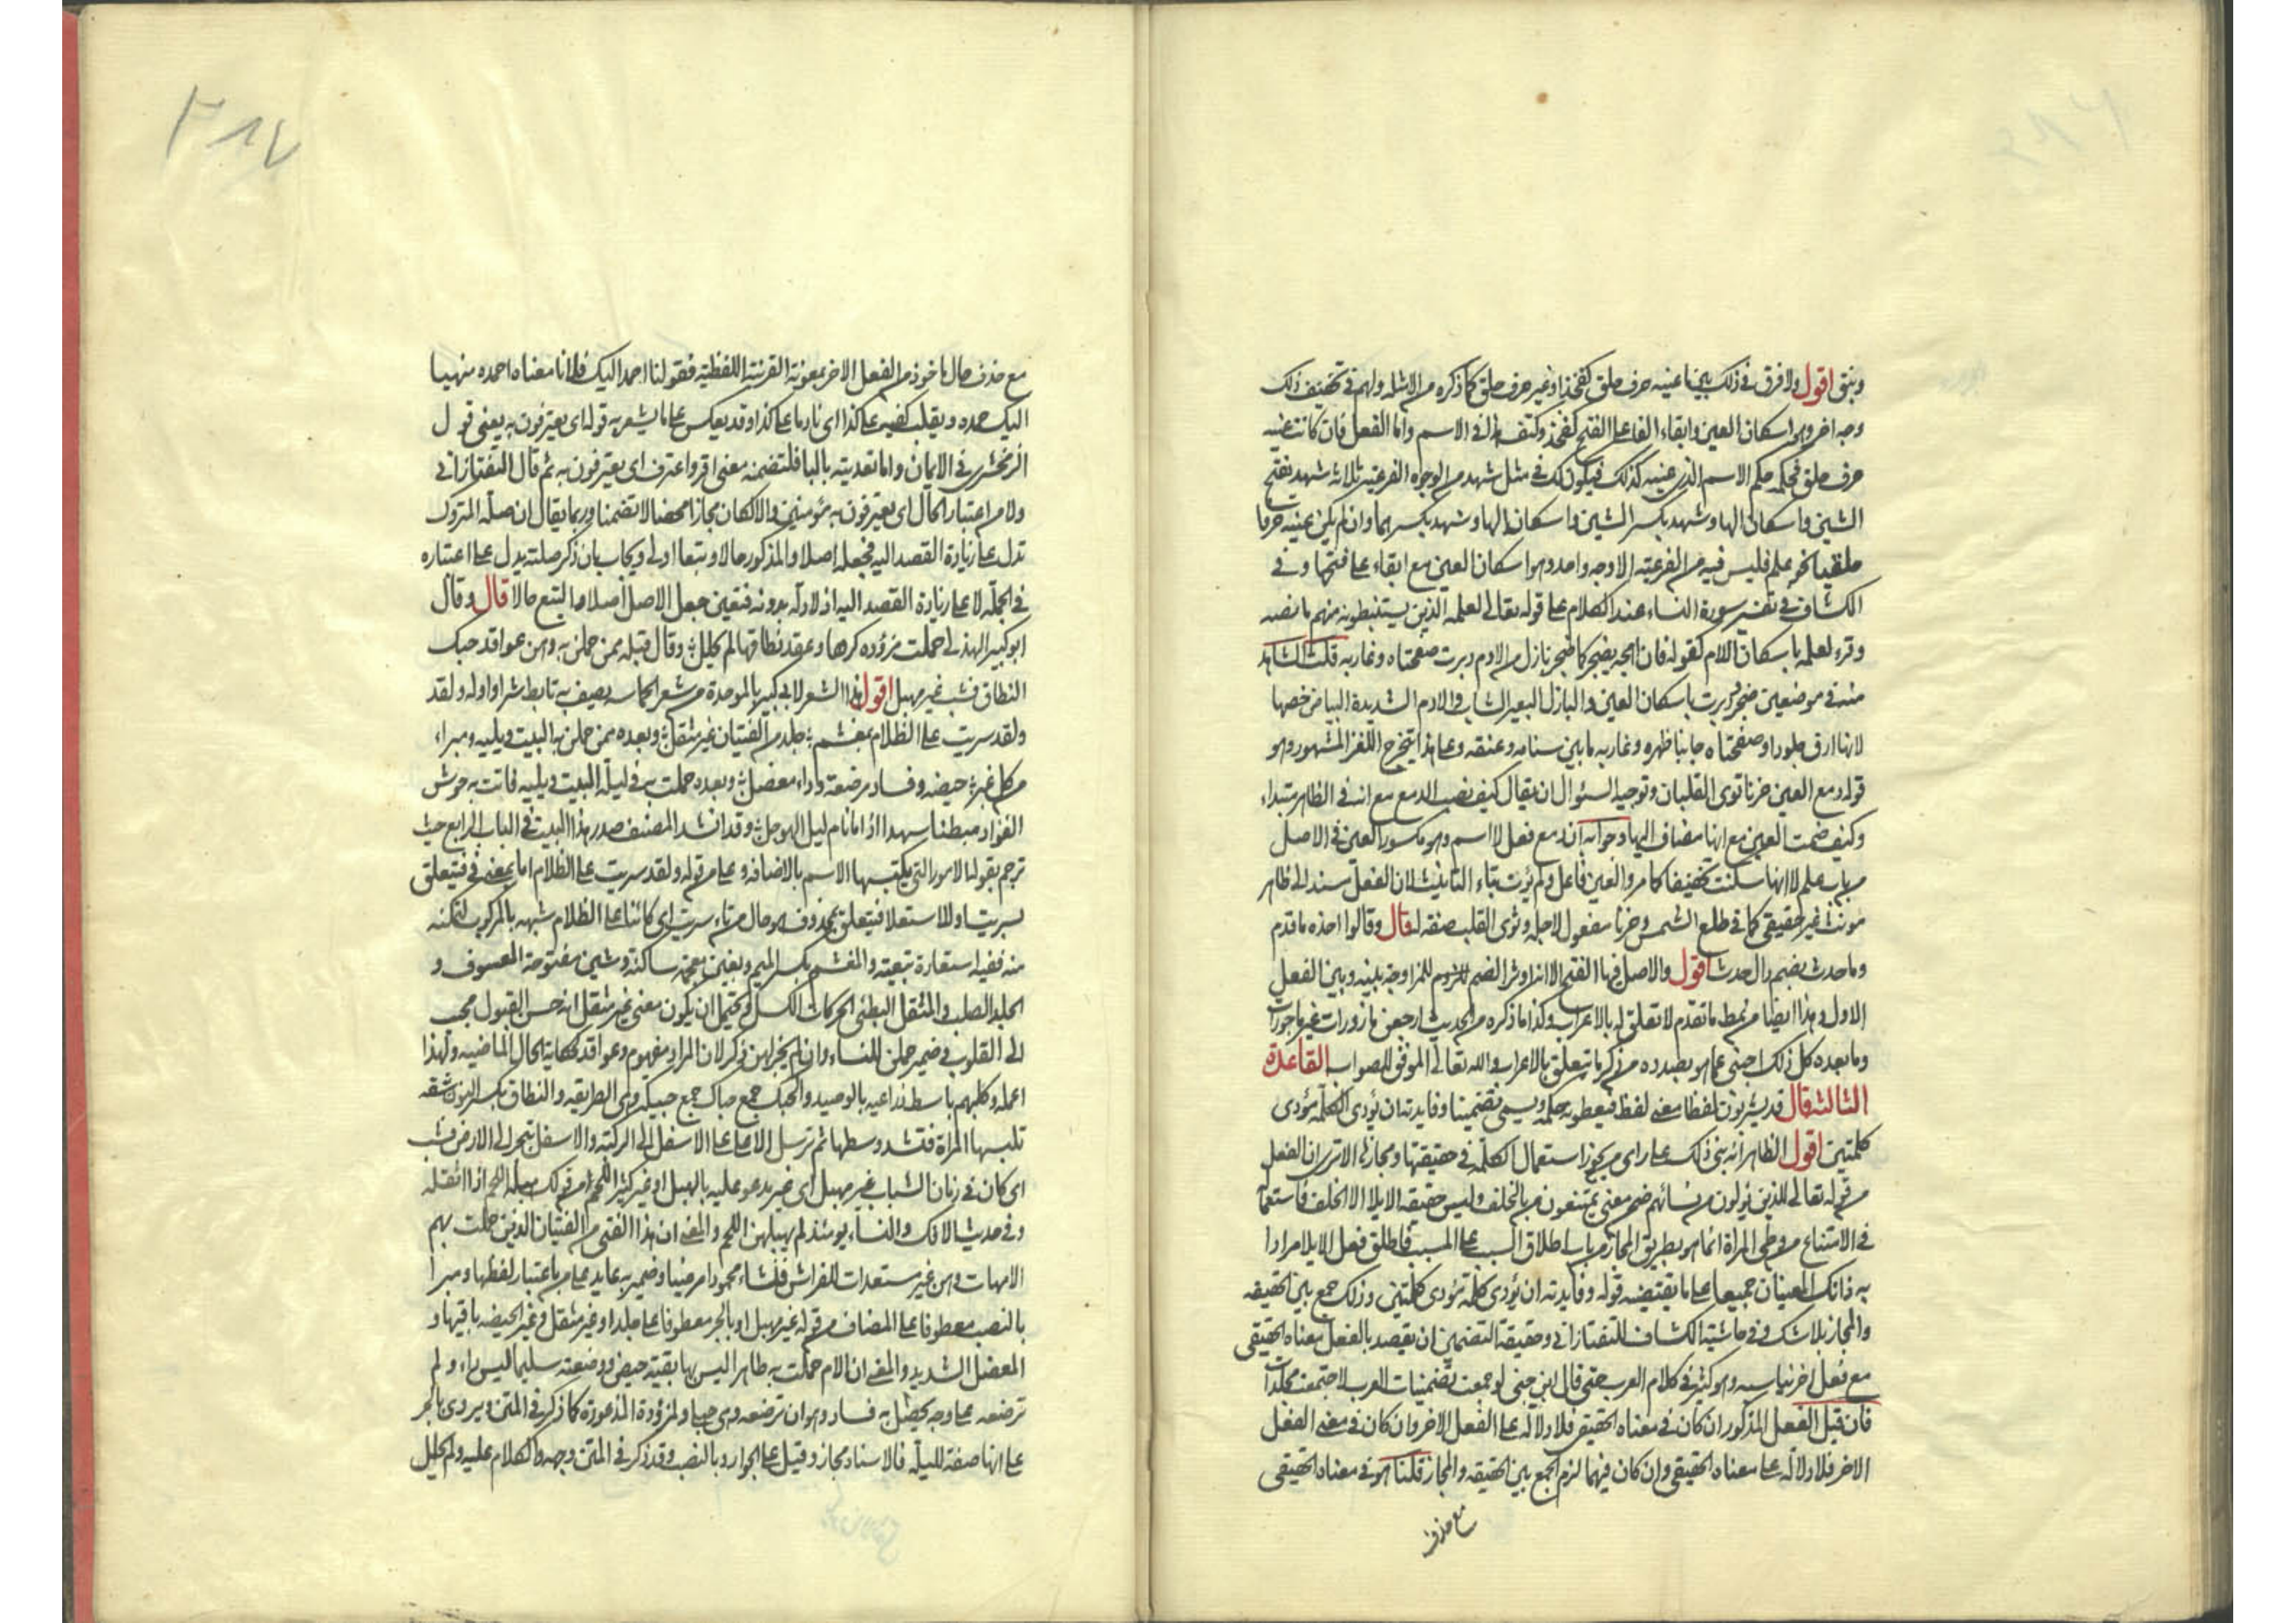 ونبق اقول ولا فرق في ذلك بين ما عينه حرف حلق كفخذ او غير حرف حلق كما ذكره من الامثلة ولهم في تخفيف ذلك
وجه اخر وهو اسكان العين وابقاء الفا على الفتح كفخذ وكتف هذا في الاسم واما الفعل فان كانت عينه
حرف حلق فحكمه حكم الاسم الذي عينه كذلك فيكون لك في مثل شهد من الوجوه الفرعية ثلاثة شهد بفتح
الشين واسكان الها وشهد بكسر الشين واسكان الها وشهد بكسرهما وان لم يكن عينه حرفا
حلقيا نحو علم فليس فيه من الفرعية الا وجه واحد وهو اسكان العين مع ابقاء على فتحها وفي
الكشاف في تفسير سورة النساء عند الكلام على قوله تعالى لعلمه الذين يستنبطونه منهم ما نصه
وقرء لعلمه باسكان اللام كقوله فان اهجه يضجر كما ضجر بازل من الادم دبرت صفحتاه وغاربه قلت الشاهد
منه في موضعين ضجر ودبرت باسكان العين والبازل البعير الشاب والادم الشديدة البياض خصها
لانها ارق جلودا وصفحتاه جانبا ظهره وغاربه ما بين سنامه وعنقه وعلى هذا يتخرج اللغز المشهور وهو
قوله دمع العين حزنا توى القلبان وتوجيه السؤال ان يقال كيف نصب الدمع مع انه في الظاهر مبتداء
وكيف ضمت العين مع انها مضاف اليها وجوابه ان دمع فعل لا اسم وهو مكسور العين في الاصل
من باب علم لا انها سكنت تخفيفا كما مر والعين فاعل ولم يؤت بتاء التانيث لان الفعل مسند الى ظاهر
مونث غير حقيقي كما في طلع الشمس وحزنا مفعول لاجله وتوى القلب صفة له قال وقالوا اخذه ما قدم
وما حدث بضم دال حدث اقول والاصل فيها الفتح الا انه اوثر الضم للزوم للمزاوجة بينه وبين الفعل
الاول وهذا ايضا من نمط ما تقدم لا تعلق له بالاعراب وكذا ما ذكره من الحديث ارجعن مازورات غير ماجورات
وما بعده كل ذلك اجنبي عما هو بصدده من ذكر ما يتعلق بالاعراب والله تعالى الموفق للصواب القاعدة
الثالثة قال قد يشربون لفظا معنى لفظ فيعطونه حكمه ويسمى تضمينا وفايدته ان يؤدى الكلمة مؤدى
كلمتين اقول الظاهر انه بنى ذلك على راى من يجوز استعمال الكلمة في حقيقتها ومجازها الا ترى ان الفعل
من قوله تعالى للذين يؤلون من نسائهم ضمن معنى يمتنعون من بالحلف وليس حقيقة الايلا الا الحلف فاستعماله
في الامتناع من وطى المراة انما هو بطريق المجاز من باب اطلاق السبب على المسبب فاطلق فعل الايلا مرادا
به ذانك المعنيان جميعا على ما يقتضيه قوله وفايدته ان يؤدى كلمة مؤدى كلمتين وذلك جمع بين الحقيقه
والمجاز بلا شك وفي حاشية الكشاف للتفتازاني وحقيقة التضمين ان يقصد بالفعل معناه الحقيقى
مع فعل اخر يناسبه وهو كثير في كلام العرب حتى قال ابن جنى لو جمعت تضمينات العرب لاجتمعت مجلدات
فان قيل الفعل المذكور ان كان في معناه الحقيقى فلا دلالة على الفعل الاخر وان كان في معنى الفعل
الاخر فلا دلالة على معناه الحقيقى وان كان فيهما لزم الجمع بين الحقيقه والمجاز قلنا هو في معناه الحقيقى
مع حذف
٣٨٧
مع حذف حال ماخوذ من الفعل الاخر بمعونة القرينة اللفظية فقولنا احمد اليك فلانا معناه احمده منهيا
اليك حمده ويقلب كفيه على كذا اى نادما على كذا وقد يعكس على ما يشعر به قوله اى يعترفون به يعنى قول
الزمخشرى في الايمان واما تعديته بالبا فلتضمنه معنى اقر واعترف اى يعترفون به ثم قال التفتازانى
ولا من اعتبار الحال اى يعترفون به مؤمنين والا لكان مجازا محضا لا تضمنا وربما يقال ان صلة المتروك
تدل على زيادة القصد اليه فجعله اصلا والمذكور حالا وتبعا اولى ويجاب بان ذكر صلته يدل على اعتباره
في الجملة لا على زيادة القصد اليه اذ لا دلالة بدونه فتعين جعل الاصل اصلا والتبع حالا قال وقال
ابو كبير الهذلى حملت مزؤده كرها وعقد نطاقها لم يحلل وقال قبله ممن حملن به وهن عواقد حبك
النطاق فشب غير مهبل اقول هذا الشعر لابى كبير بالموحدة من شعر الحماسه يصف به تابط شرا واوله ولقد
ولقد سريت على الظلام بمغشم جلد من الفتيان غير مثقل وبعده ممن حملن به البيت ويليه ومبراء
من كل غبر حيضه وفساد مرضعة وداء معضل وبعده حملت به في ليلة البيت ويليه فاتت به حوش
الفؤاد مبطنا سهدا اذا ما نام ليل الهوجل وقد انشد المصنف صدر هذا البيت في الباب الرابع حيث
ترجم بقوله الامور التى يكتسبها الاسم بالاضافه وعلى من قوله ولقد سريت على الظلام اما بمعنى في فتيعلق
بسريت او للاستعلا فيتعلق بمحذوف هو حال من تاء سريت اى كائنا على الظلام شبهه بالمركوب لتمكنه
منه ففيه استعارة تبعية والمغشم بكسر الميم وبغين معجمة ساكنة وشين مفتوحة العسوف و
الجلد الصلب والمثقل البطئ الحركات الكسل ويحتمل ان يكون معنى غير مثقل انه حسن القبول محبب
الى القلوب في ضمير حملن للنساء وان لم يجر لهن ذكر لان المراد مفهوم وعواقد حكاية الحال الماضية ولهذا
اعمله وكلبهم باسط ذراعيه بالوصيد والحبك جمع حباك جمع حبيكه وهى الطريقه والنطاق بكسر النون شقه
تلبسها المراة فتشد وسطها ثم ترسل الاعلى على الاسفل الى الركبة والاسفل ينجر الى الارض فشب
اى كان في زمان الشباب غير مهبل اى غير مدعو عليه بالهبل او غير كثير اللحم من قولك هبله اللحم اذا اثقله
وفي حديث الافك والنساء يومئذ لم يهبلهن اللحم والمعنى ان هذا الفتى من الفتيان الذين حملت بهم
الامهات وهن غير مستعدات للفراش فنشاء محمودا مرضيا وضمير به عايد على من باعتبار لفظها ومبرأ
بالنصب معطوفا على المضاف من قوله غير مهبل او بالجر معطوفا على جلد او غير مثقل وغبر الحيضه باقيها و
المعضل الشديد والمعنى ان الام حملت به طاهرا ليس بها بقية حيض ووضعته سليما ليس به داء ولم
ترضعه على وجه يحصل به فساد وهو ان ترضعه وهى حبلى والمزؤدة المذعورة كما ذكره في المتن ويروى بالجر
على انها صفة لليلة فالاسناد مجاز وقيل على الجوار وبالنصب وقد ذكر في المتن وجهه والكلام عليه ولم يحلل